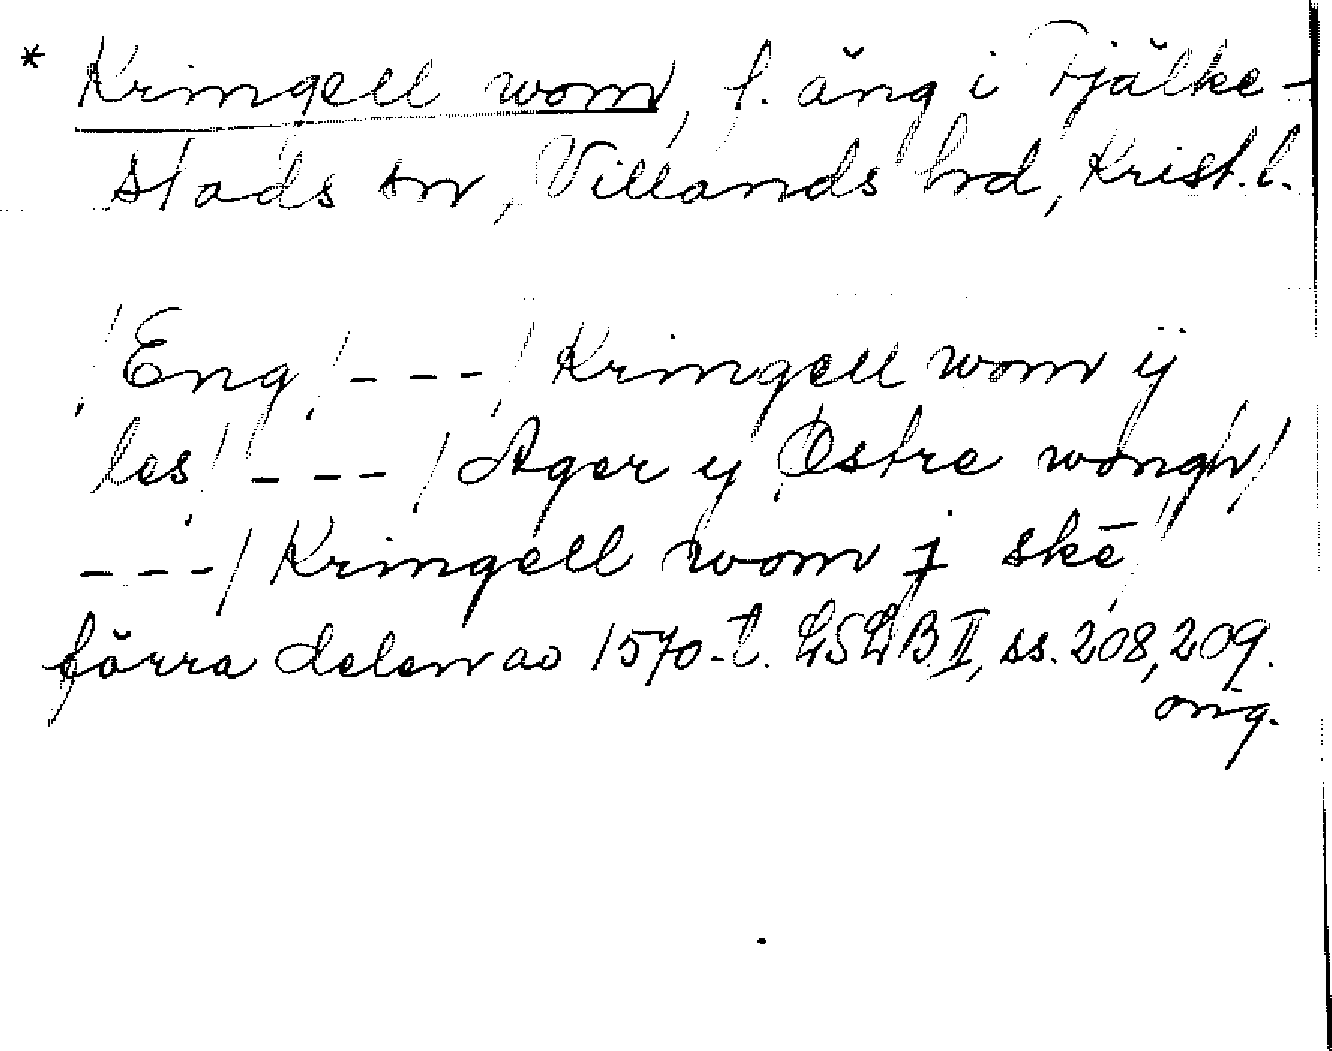 * Kringell worn, f. äng i Fjälke-
stads sn, Villands hrd, Krist. l.
/Eng/ - - - / Kringell worn ij
les/ - - - / Ager ij Østre wongh/
- - - / Kringell worn j ske/
förra delen av 1570-t. LSLB II, ss. 208, 209.
orig.